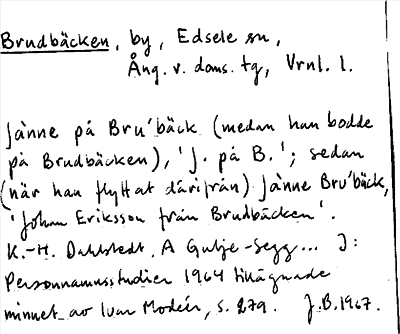 Brudbäcken, by, Edsele sn,
Ång. v. doms. tg, Vrnl. l.
Jànne på Bru´bäck (medan han bodde
på Brudbäcken), 'J. på B.'; sedan
(när han flyttat därifrån) Jànne Bru´bäck,
'Johan Eriksson från Brudbäcken'.
K.-H. Dahlstedt, A Gulje-Segg... I:
Personnamnsstudier 1964 tillägnade
minnet av Ivar Modéer, s. 279. J.B. 1967.